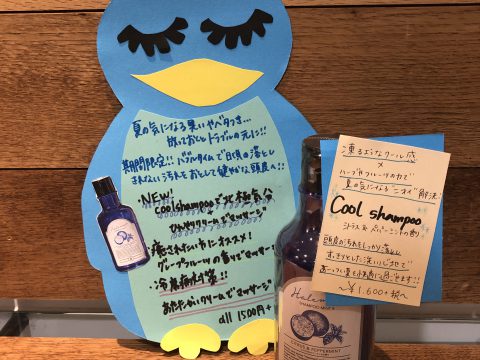 夏の気になる臭いやベタつき…
放っておくとトラブルの元に!!
期間限定!! バブルタイムで日頃の落とし
きれない汚れをおとして健やかな頭皮へ!!
・NEW!
Cool shampooで北極気分
ひんやりクリームでマッサージ
癒されたい方にオススメ!
グレープフルーツの香りでマッサージ!
・冷房病対策!!
あたたかいクリームでマッサージ
all 1500円+
凍るようなクール感
×
ハーブやフルーツの力で
夏の気になる"ニオイ"解決
Cool shampoo
シトラス&ペパーミントの香り
頭皮の汚れをしっかり落とし
すっきりとした洗い心地で
あつーい夏を快適に過ごせます!!
~¥1,600+税~
SHAMPOO
& PEPPERMINT